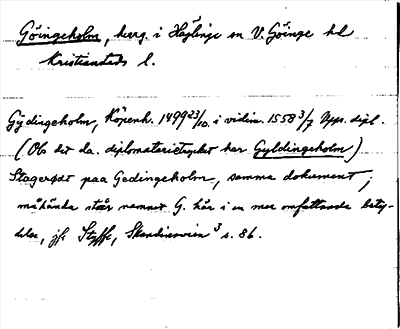 Göingeholm, herrg. i Häglinge sn V. Göinge hd
Kristianstads l.
Gydingeholm, Köpenh. 1499 23/10. i vidim. 1558 3/7 Upps. dipl.
(Obs det da. diplomatarietrycket har Gyldingeholm)
Stagerødt paa Gedingeholm, samma dokument;
måhända står namnet G. här i en mer omfattande bety-
delse, jfr Styffe, Skandinavien 3 s. 86.